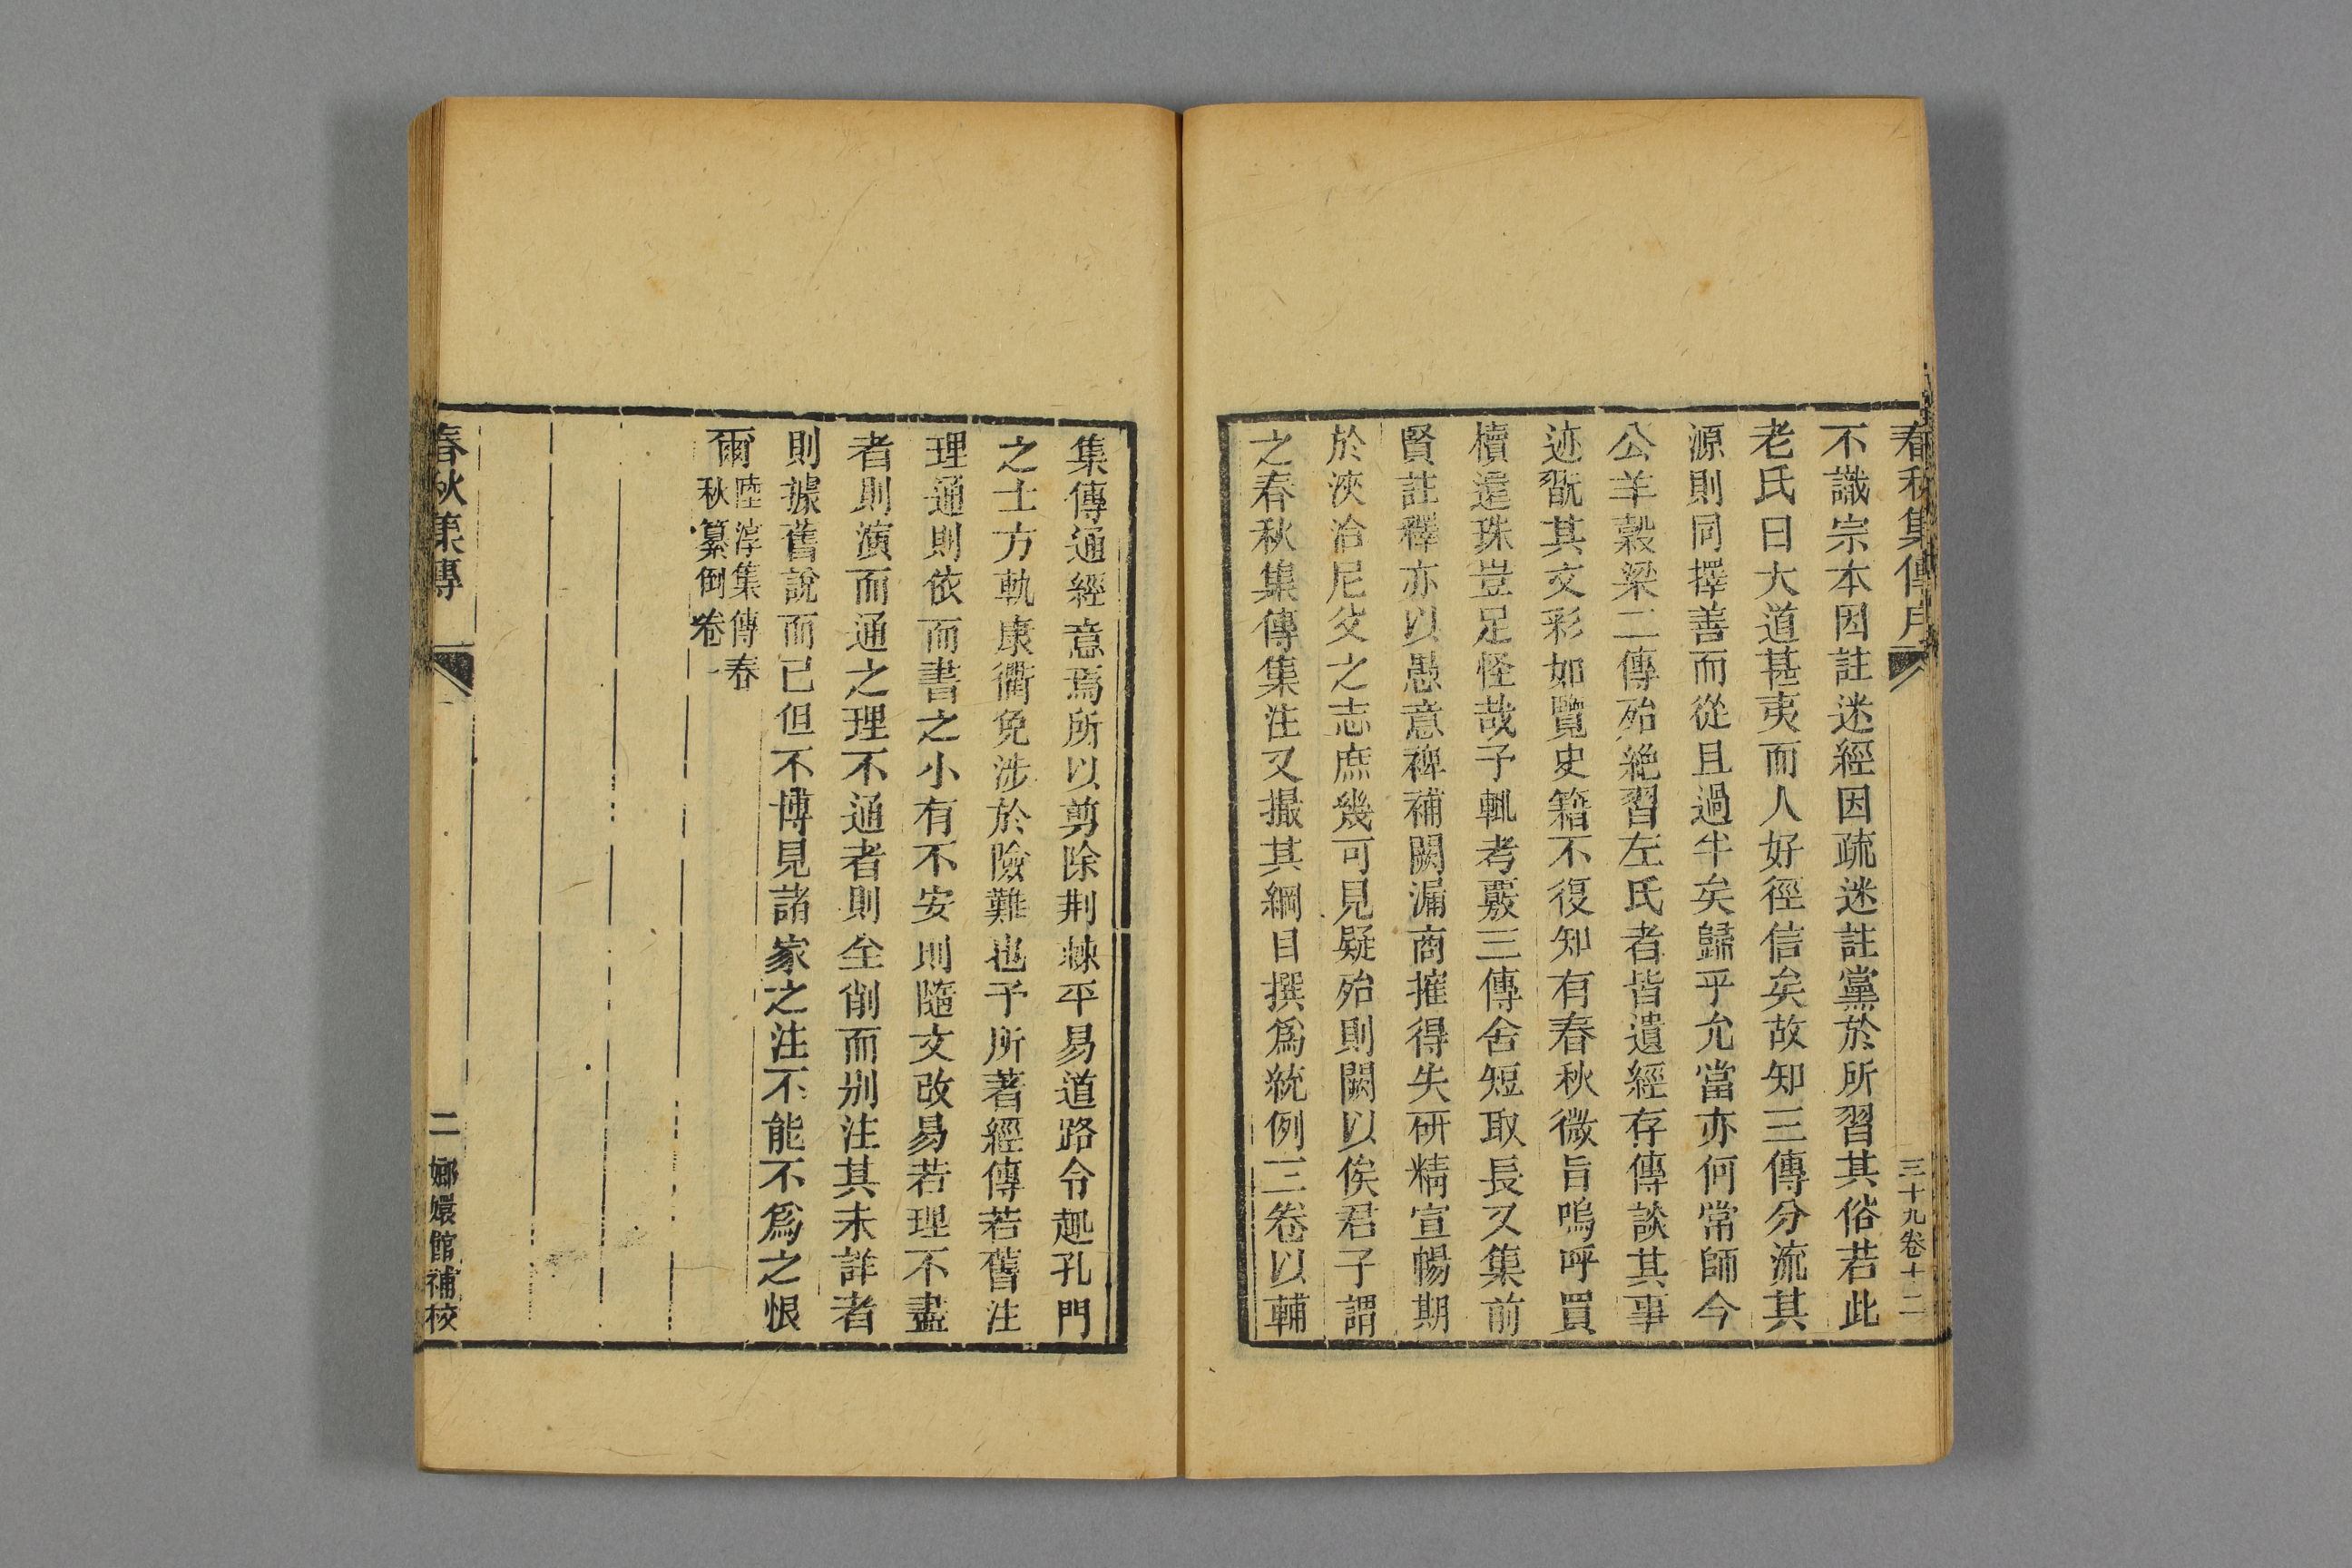 春秋集傳序
三十九卷十二
不識宗本因註迷經因疏迷註黨於所習其俗若此
老氏曰大道甚夷而人好徑信矣故知三傳分流其
源則同擇善而從且過半矣歸乎允當亦何常師今
公羊穀梁二傳殆絶習左氏者皆遺經存傳談其事
迹翫其文彩如覽史籍不復知有春秋微旨嗚呼買
櫝還珠豈足怪哉予輒考覈三傳舍短取長又集前
賢註釋亦以愚意裨補闕漏商搉得失研精宣暢期
於浹洽尼父之志庶幾可見疑殆則闕以俟君子謂
之春秋集傳集注又撮其綱目撰爲統例三卷以輔
集傳通經意焉所以剪除荆棘平易道路令趣孔門
之士方軌康衢免涉於險難也予所著經傳若舊注
理通則依而書之小有不安則隨文改易若理不盡
者則演而通之理不通者則全削而别注其未詳者
則據舊說而已但不博見諸家之注不能不爲之恨
爾陸淳集傳春
秋纂例卷一
春秋集傳
二
嫏嬛館補校